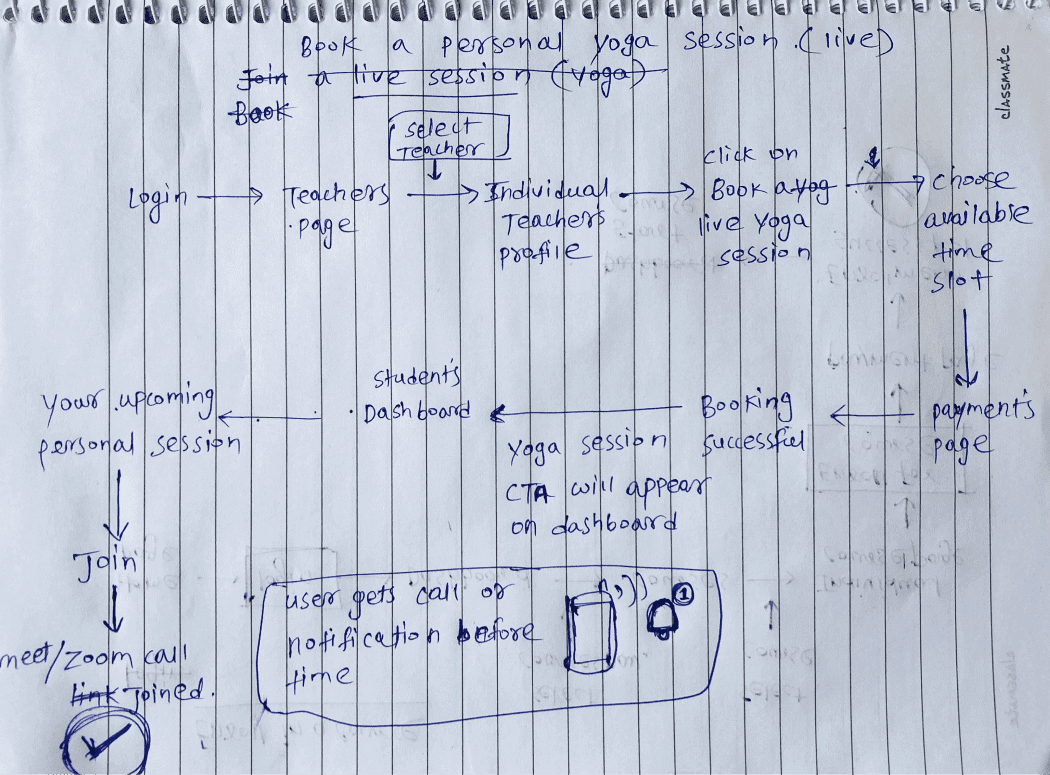 Book a personal yoga session. (live)
Join a live session (yoga)
Book
classmate
select
Teacher
Login
Teachers
page
Individual
Teacher's
profile
click on
Book a yog
live yoga
session
choose
available
time
slot
payment's
page
Booking
successful
yoga session
CTA will appear
on dashboard
Student's
Dashboard
Your upcoming
personal session
Join
meet/zoom call
link joined.
user gets call or
notification before
time
1